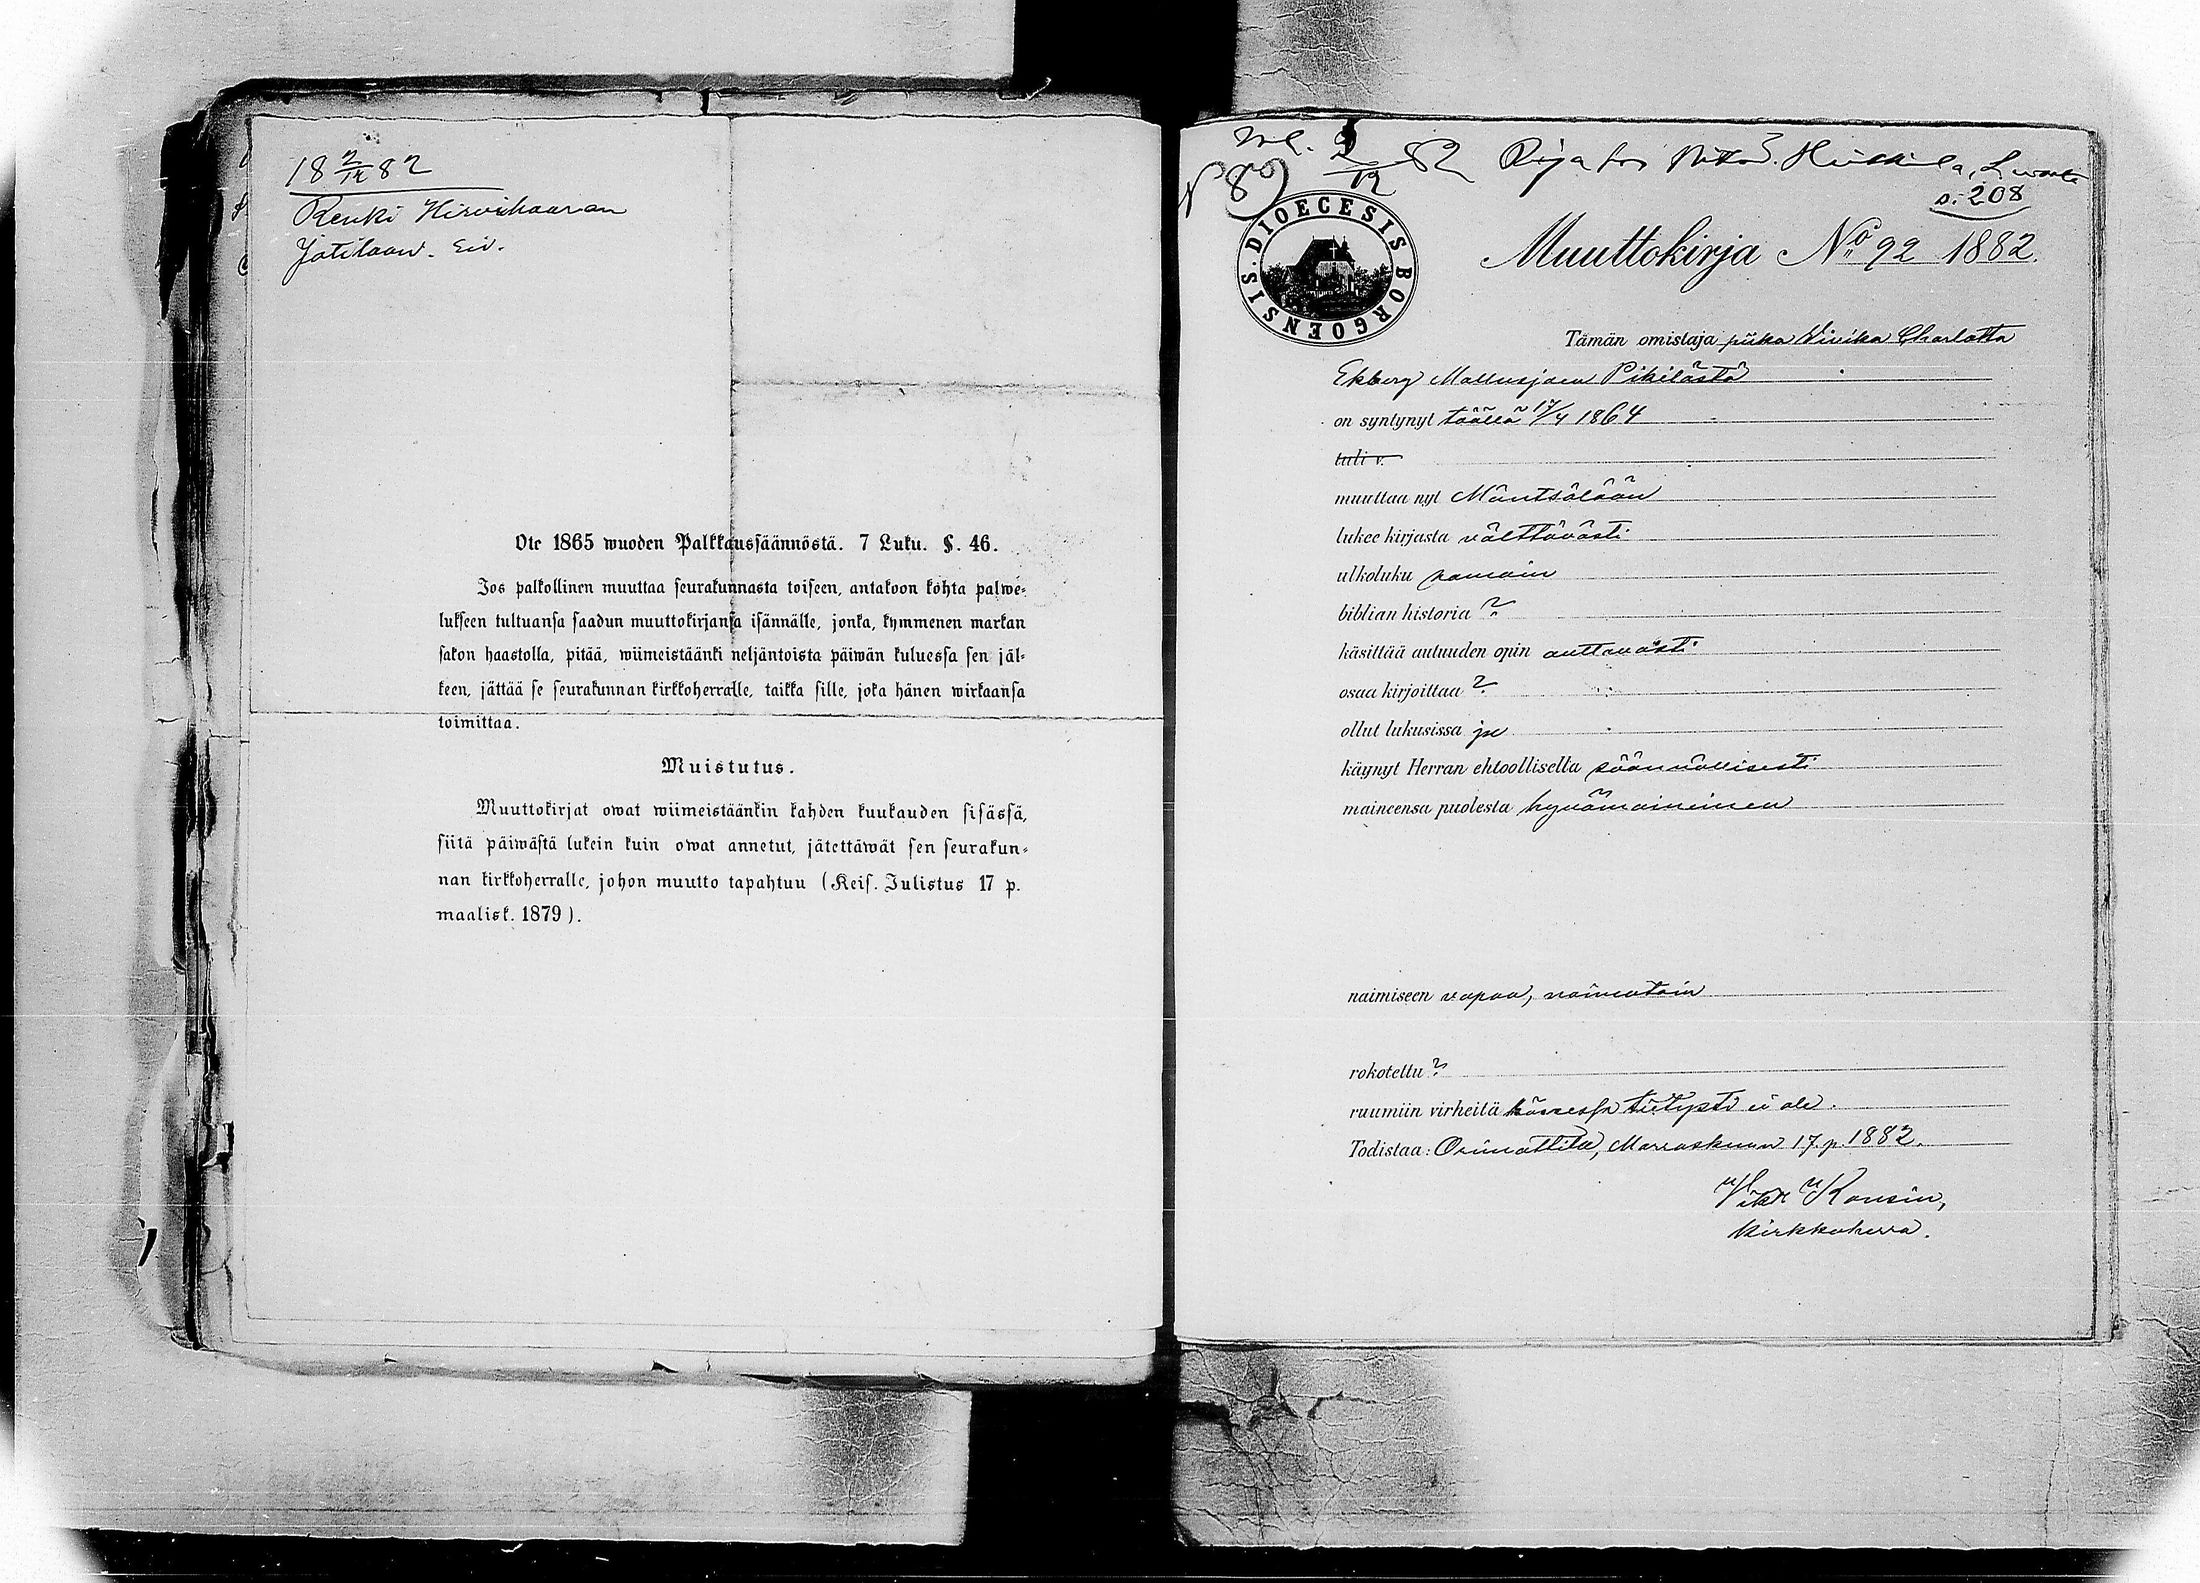 18 2/12 82
Renki Hirvihaaran
Jotilaan. Siv.
Ote 1865 wuoden Palkkaussäännöstä. 7 Luku. §. 46.
Jos palkollinen muuttaa seurakunnasta toiseen, antakoon kohta palwe-
lukseen tultuansa saadun muuttokirjansa isännälle, jonka, kymmenen markan
sakon haastolla, pitää, wiimeistäänki neljäntoista päiwän kuluessa sen jäl-
keen, jättää se seurakunnan kirkkoherralle, taikka sille, joka hänen wirkaansa
toimittaa.
Muistutus.
Muuttokirjat owat wiimeistäänkin kahden kuukauden sisässä,
siitä päiwästä lukein kuin owat annetut, jätettäwät sen seurakun-
nan kirkkoherralle, johon muutto tapahtuu (Keis. Julistus 17 p.
maalisk. 1879).
82
N 89
s. 208
DIOECESIS BORGOENSIS.
Muuttokirja No 92 1882.
Tämän omistaja piika Vivika Charlotta
Ekberg Mallusjoen Pikilästä
on syntynyt täällä 17/4 1864
tuli v.
muuttaa nyt Mäntsälään
lukee kirjasta välttävästi
ulkoluku samoin
biblian historia ?
käsittää autuuden opin auttavasti
osaa kirjoittaa ?
ollut lukusissa jo
käynyt Herran ehtoollisella säännöllisesti
maineensa puolesta hyvämaineinen
naimiseen vapaa, naimatoin
rokotettu ?
ruumiin virheitä tietysti ei ole.
Todistaa: Orimattila, Marraskuun 17. p. 1882.
Kirkkoherra.